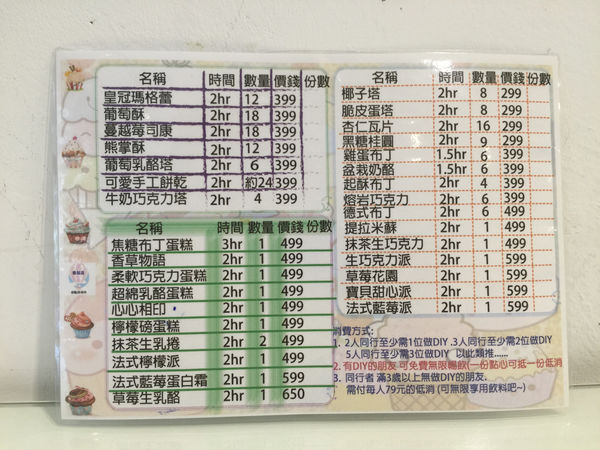 名稱 時間 數量 價錢 份數
皇冠瑪格蕾 2hr 12 399
葡萄酥 2hr 18 399
蔓越莓司康 2hr 18 399
熊掌酥 2hr 12 399
葡萄乳酪塔 2hr 6 399
可愛手工餅乾 2hr 約24 399
牛奶巧克力塔 2hr 4 399
名稱 時間 數量 價錢 份數
焦糖布丁蛋糕 3hr 1 499
香草物語 2hr 1 499
柔軟巧克力蛋糕 2hr 1 499
超綿乳酪蛋糕 2hr 1 499
心心相印 2hr 1 499
檸檬磅蛋糕 2hr 1 499
抹茶生乳捲 2hr 2 499
法式檸檬派 2hr 1 499
法式藍莓蛋白霜 2hr 1 599
草莓生乳酪 2hr 1 650
名稱 時間 數量 價錢 份數
椰子塔 2hr 8 299
脆皮蛋塔 2hr 8 299
杏仁瓦片 2hr 16 299
黑糖桂圓 2hr 9 299
雞蛋布丁 1.5hr 6 399
盆栽奶酪 1.5hr 6 399
起酥布丁 2hr 4 399
熔岩巧克力 2hr 6 399
德式布丁 2hr 6 499
提拉米蘇 2hr 1 499
抹茶生巧克力 2hr 1 499
生巧克力派 2hr 1 599
草莓花園 2hr 1 599
寶貝甜心派 2hr 1 599
法式藍莓派 2hr 1 599
消費方式:
1. 2人同行至少需1位做DIY .3人同行至少需2位做DIY
5人同行至少需3位做DIY 以此類推......
2. 有DIY的朋友 可免費無限暢飲(一份點心可抵一份低消
3. 同行者 滿3歲以上無做DIY的朋友.
需付每人79元的低消 (可無限享用飲料吧~)